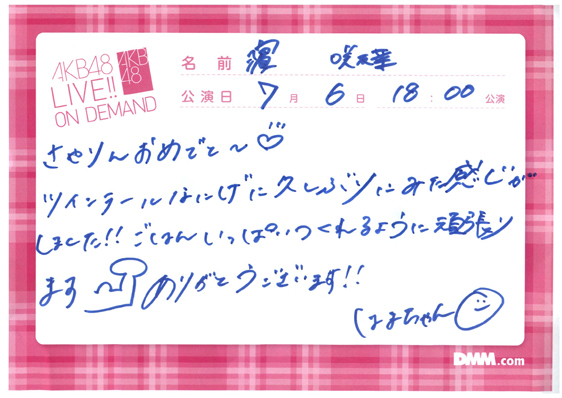 AKB48
LIVE!!
ON DEMAND
AKB
48
名前 濵 咲友菜
公演日 7月 6日 18:00 公演
さやりんおめでと〜♡
ツインテールなにげに久しぶりにみた感じが
しました!! ごはんいっぱいつくれるように頑張り
ます ありがとうございます!!
はまちゃん
DMM.com